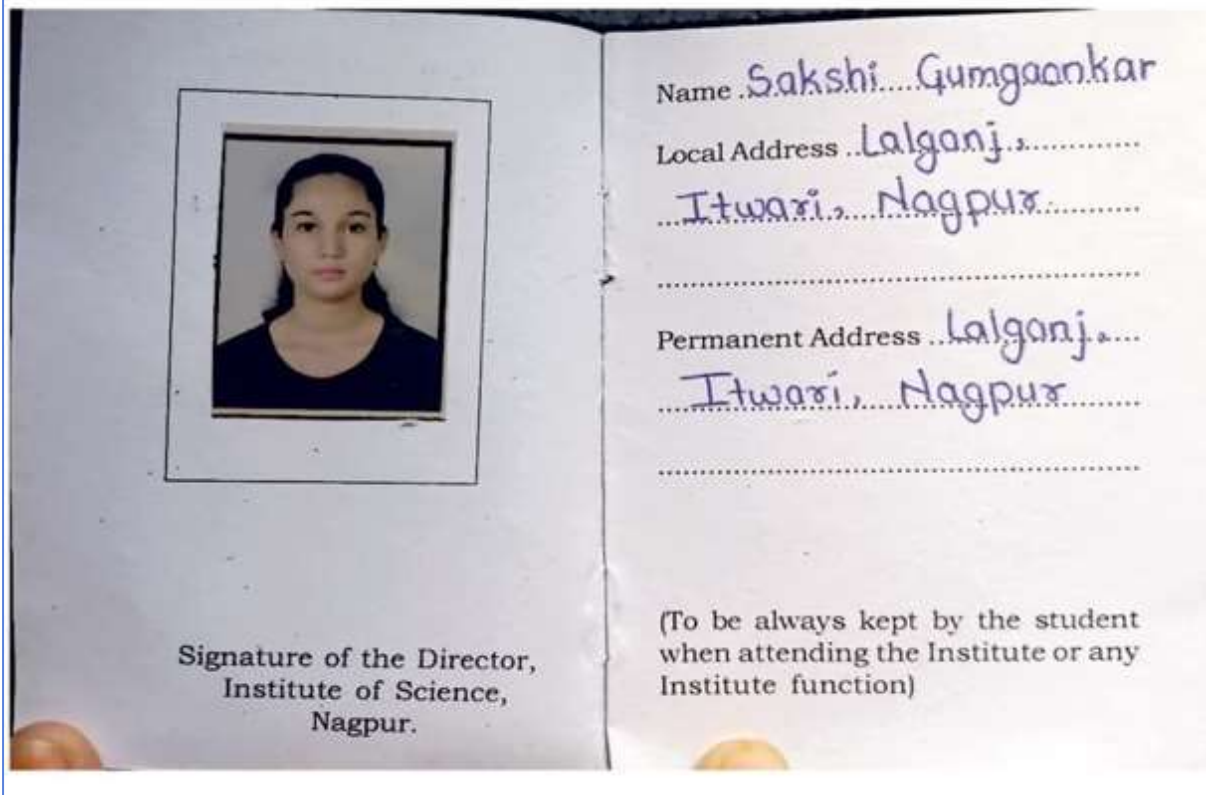 Signature of the Director,
Institute of Science,
Nagpur.
Name Sakshi Gumgaonkar
Local Address Lalganj,
Itwari, Nagpur
Permanent Address Lalganj,
Itwari, Nagpur
(To be always kept by the student
when attending the Institute or any
Institute function)